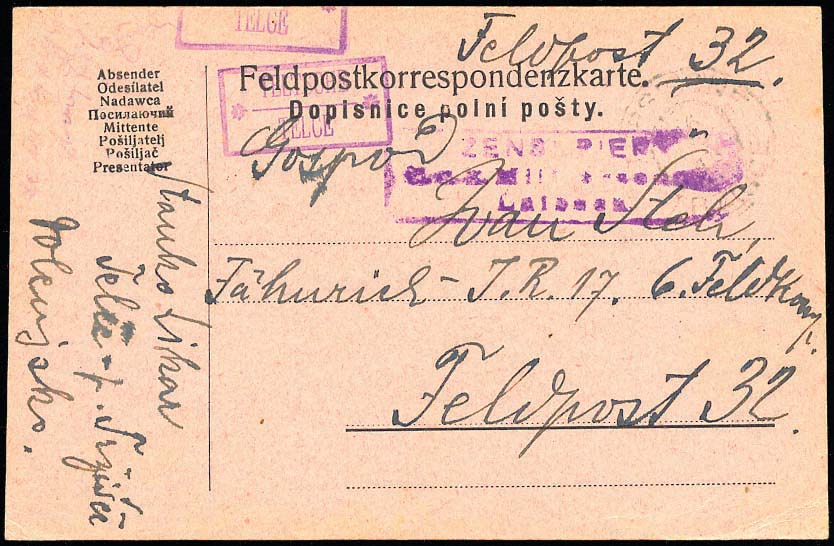 TELCE
Feldpost 32.
Absender
Odesílatel
Nadawca
Посилаючий
Mittente
Pošiljatelj
Pošiljač
Presentator
Feldpostkorrespondenzkarte.
Dopisnice polní pošty.
TELCE
Gospod
ZENSURIERT
Laibach
Ivan Šteh,
Fähnrich - I.R. 17. 6. Feldkomp.
Feldpost 32.
Stanko Lihar
Telče - p. Tržišče
Dolenjsko.